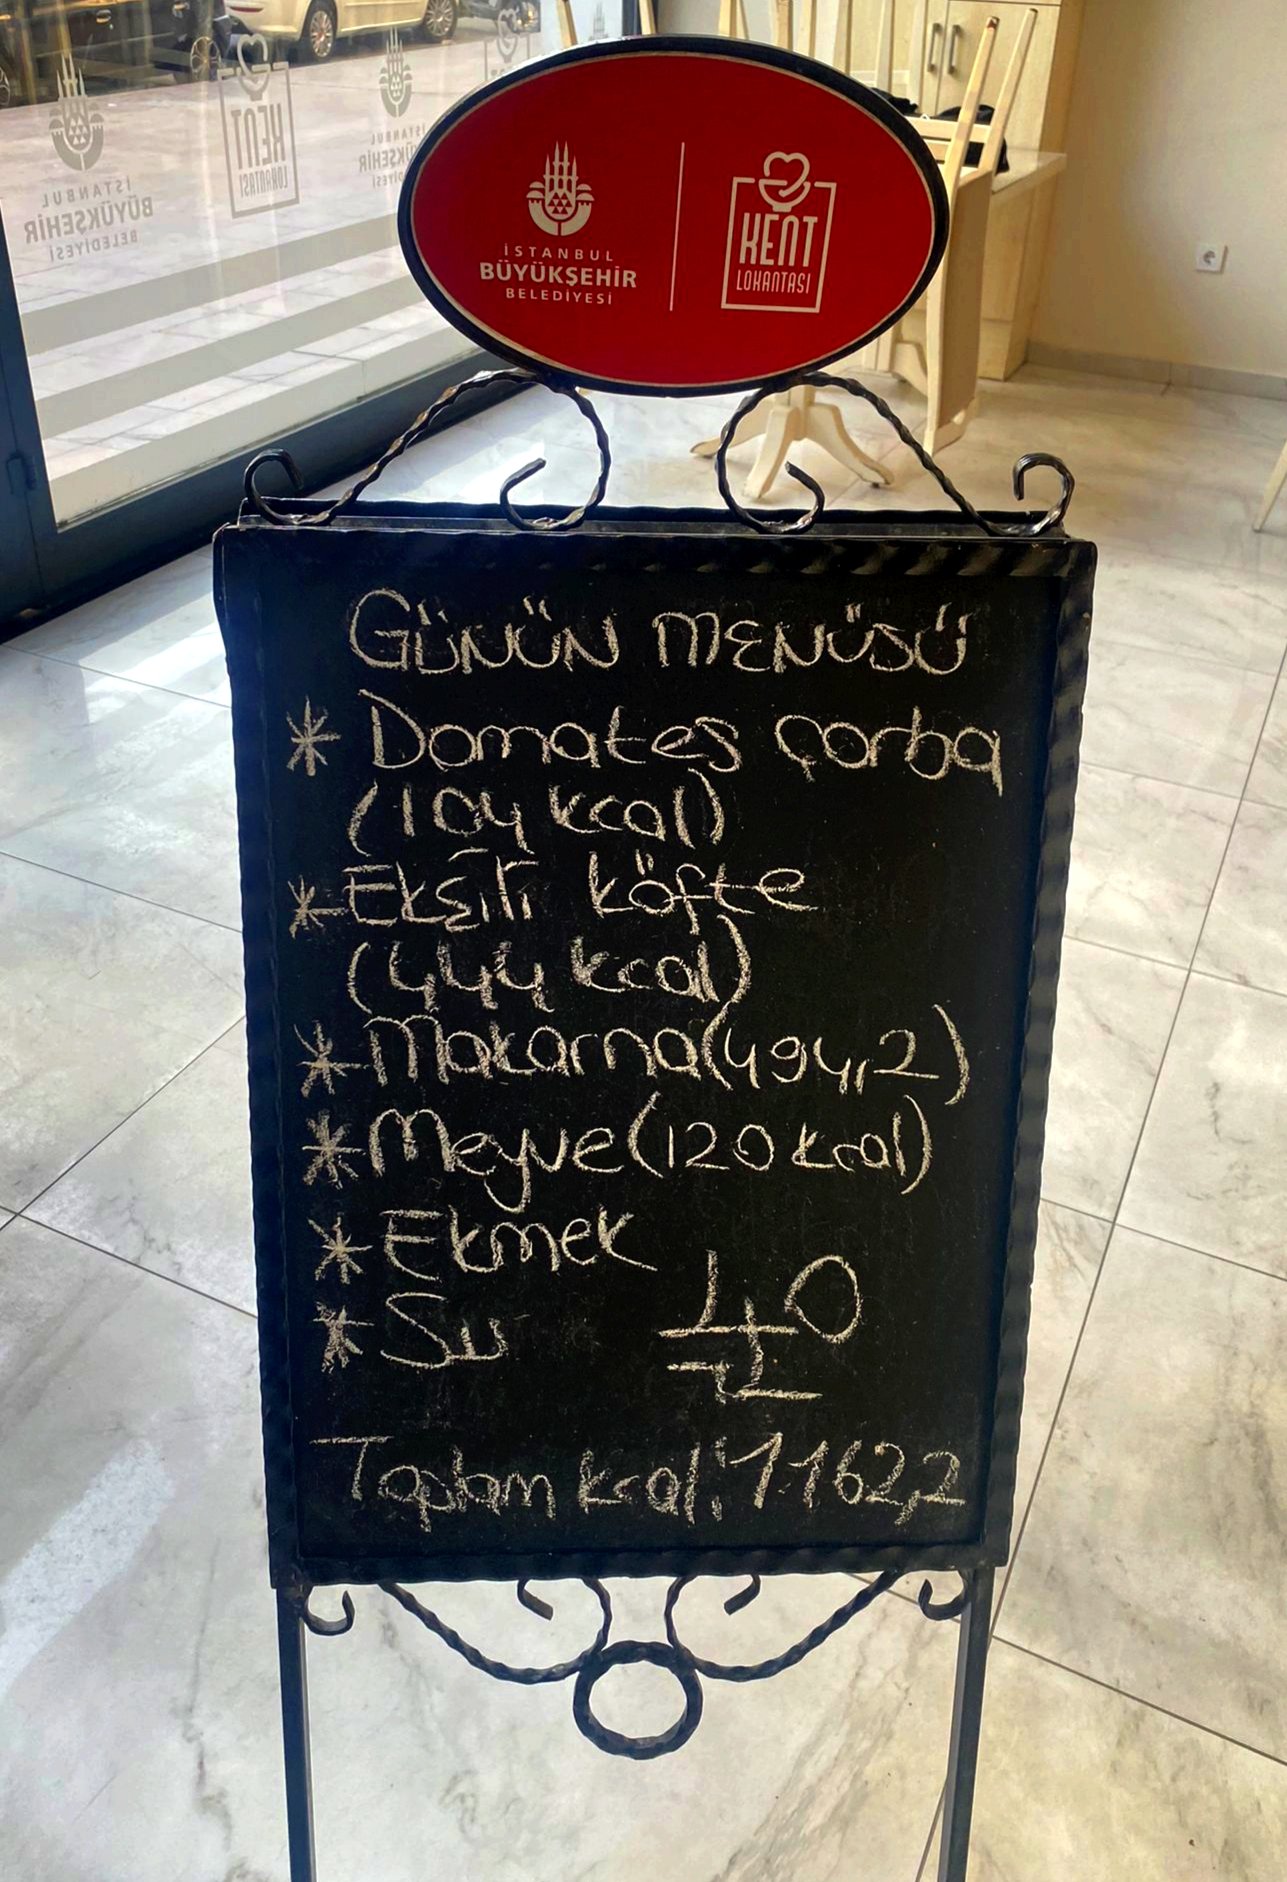 İSTANBUL
BÜYÜKŞEHİR
BELEDİYESİ
KENT
LOKANTASI
İSTANBUL
BÜYÜKŞEHİR
BELEDİYESİ
KENT
LOKANTASI
İSTANBUL
BÜYÜKŞEHİR
BELEDİYESİ
GÜNÜN MENÜSÜ
* Domates çorba
(104 kcal)
* Ekşili köfte
(444 kcal)
* Makarna (494,2)
* Meyve (120 kcal)
* Ekmek
* Su
40
TL
Toplam kcal: 1162,2